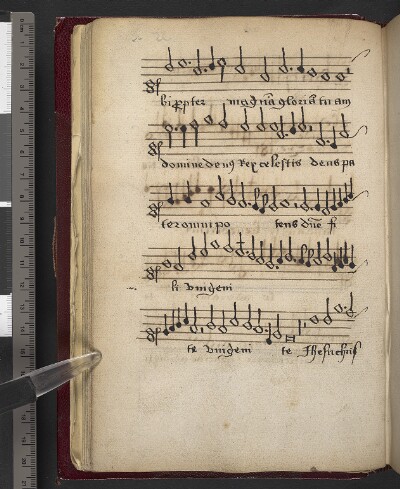 bi ꝓpter magnā gloriā tu am
domine deus Rex celestis deus pa
ter omnipo tens dn̄e fi
li vnigeni
te vnigeni te Jhesu chris